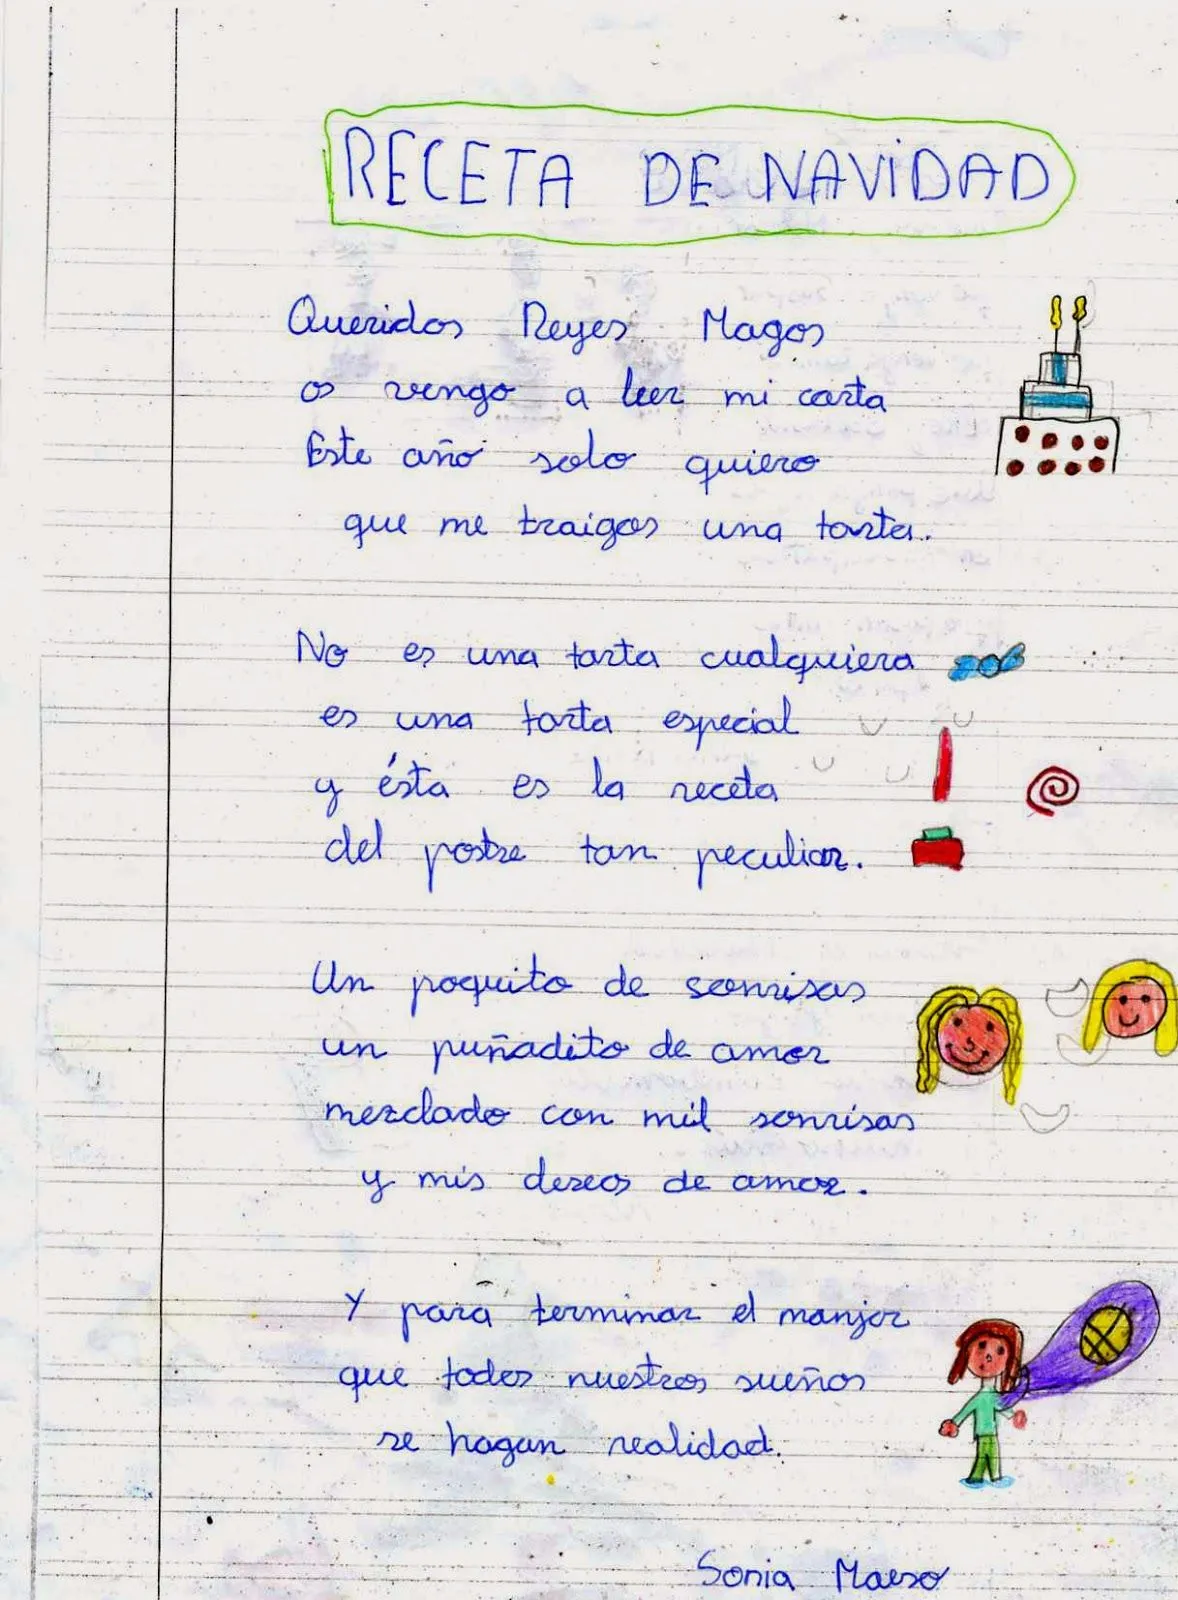 RECETA DE NAVIDAD
Queridos Reyes Magos
os vengo a leer mi carta
Este año solo quiero
que me traigas una tarta.
No es una tarta cualquiera
es una tarta especial
y ésta es la receta
del postre tan peculiar.
Un poquito de sonrisas
un puñadito de amor
mezclado con mil sonrisas
y mis deseos de amor.
Y para terminar el manjar
que todos nuestros sueños
se hagan realidad.
Sonia Maeso